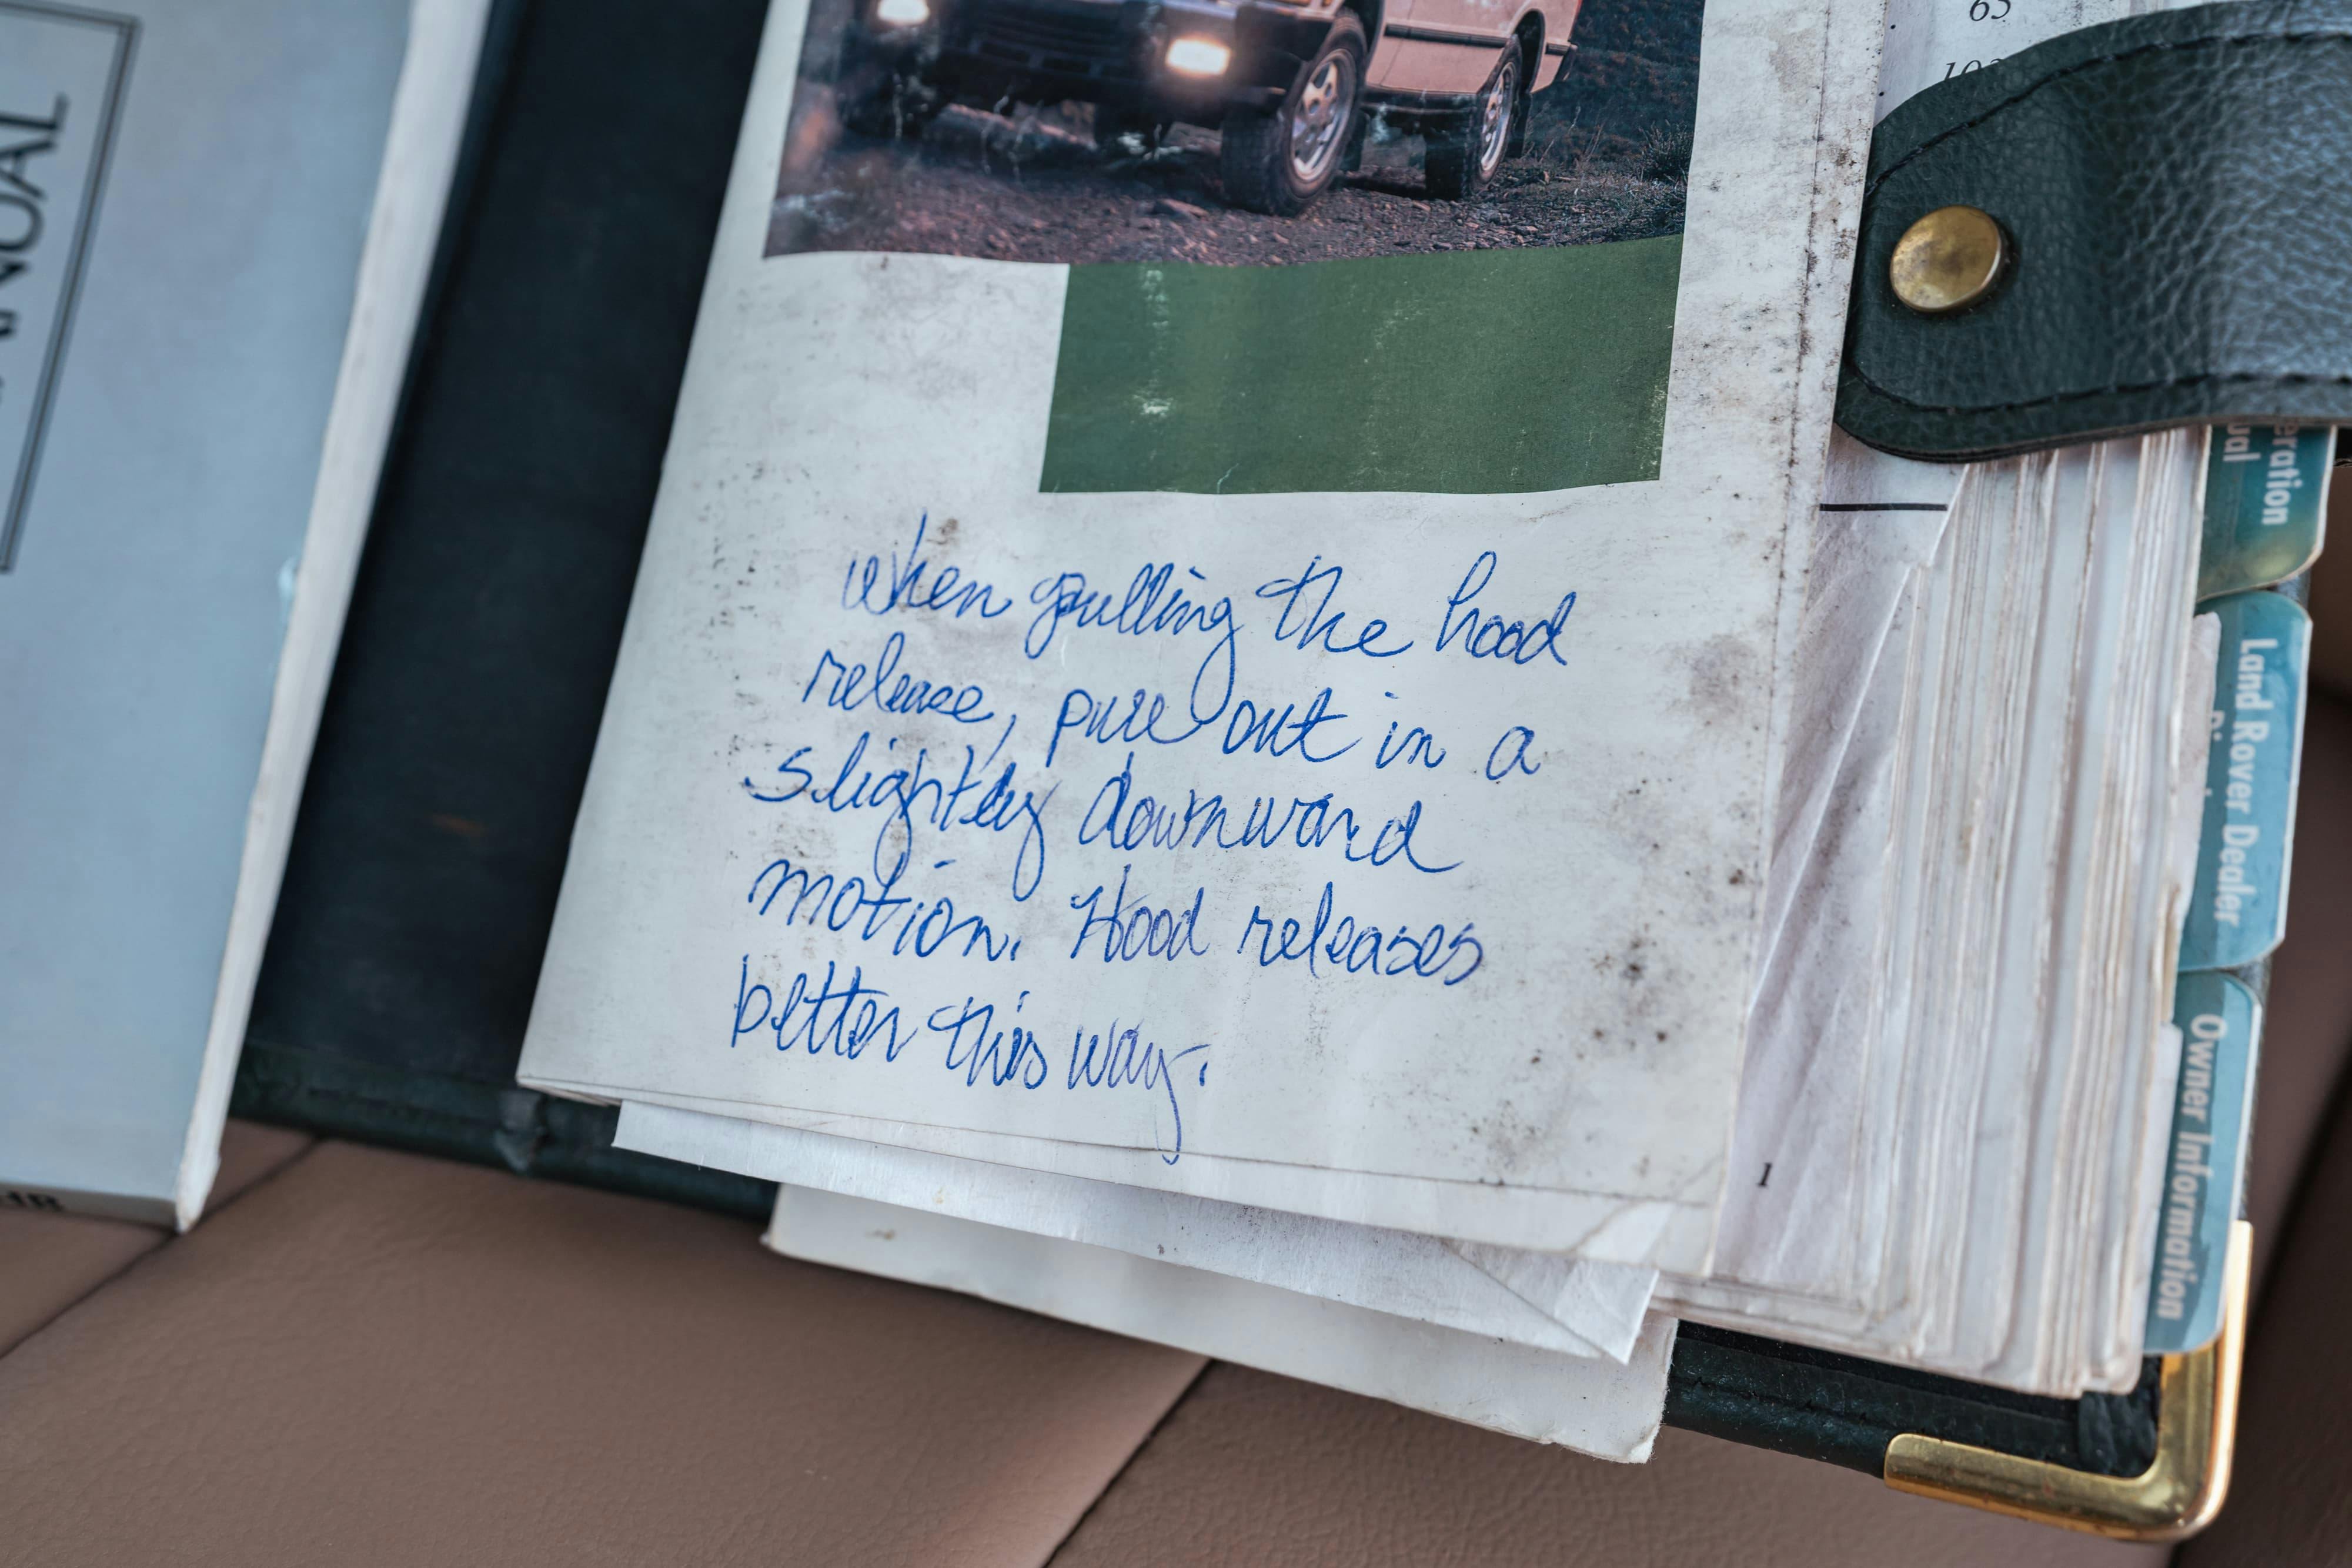 65
when pulling the hood
release, pull out in a
slightly downward
motion. Hood releases
better this way.
1
Land Rover Dealer
Owner Information